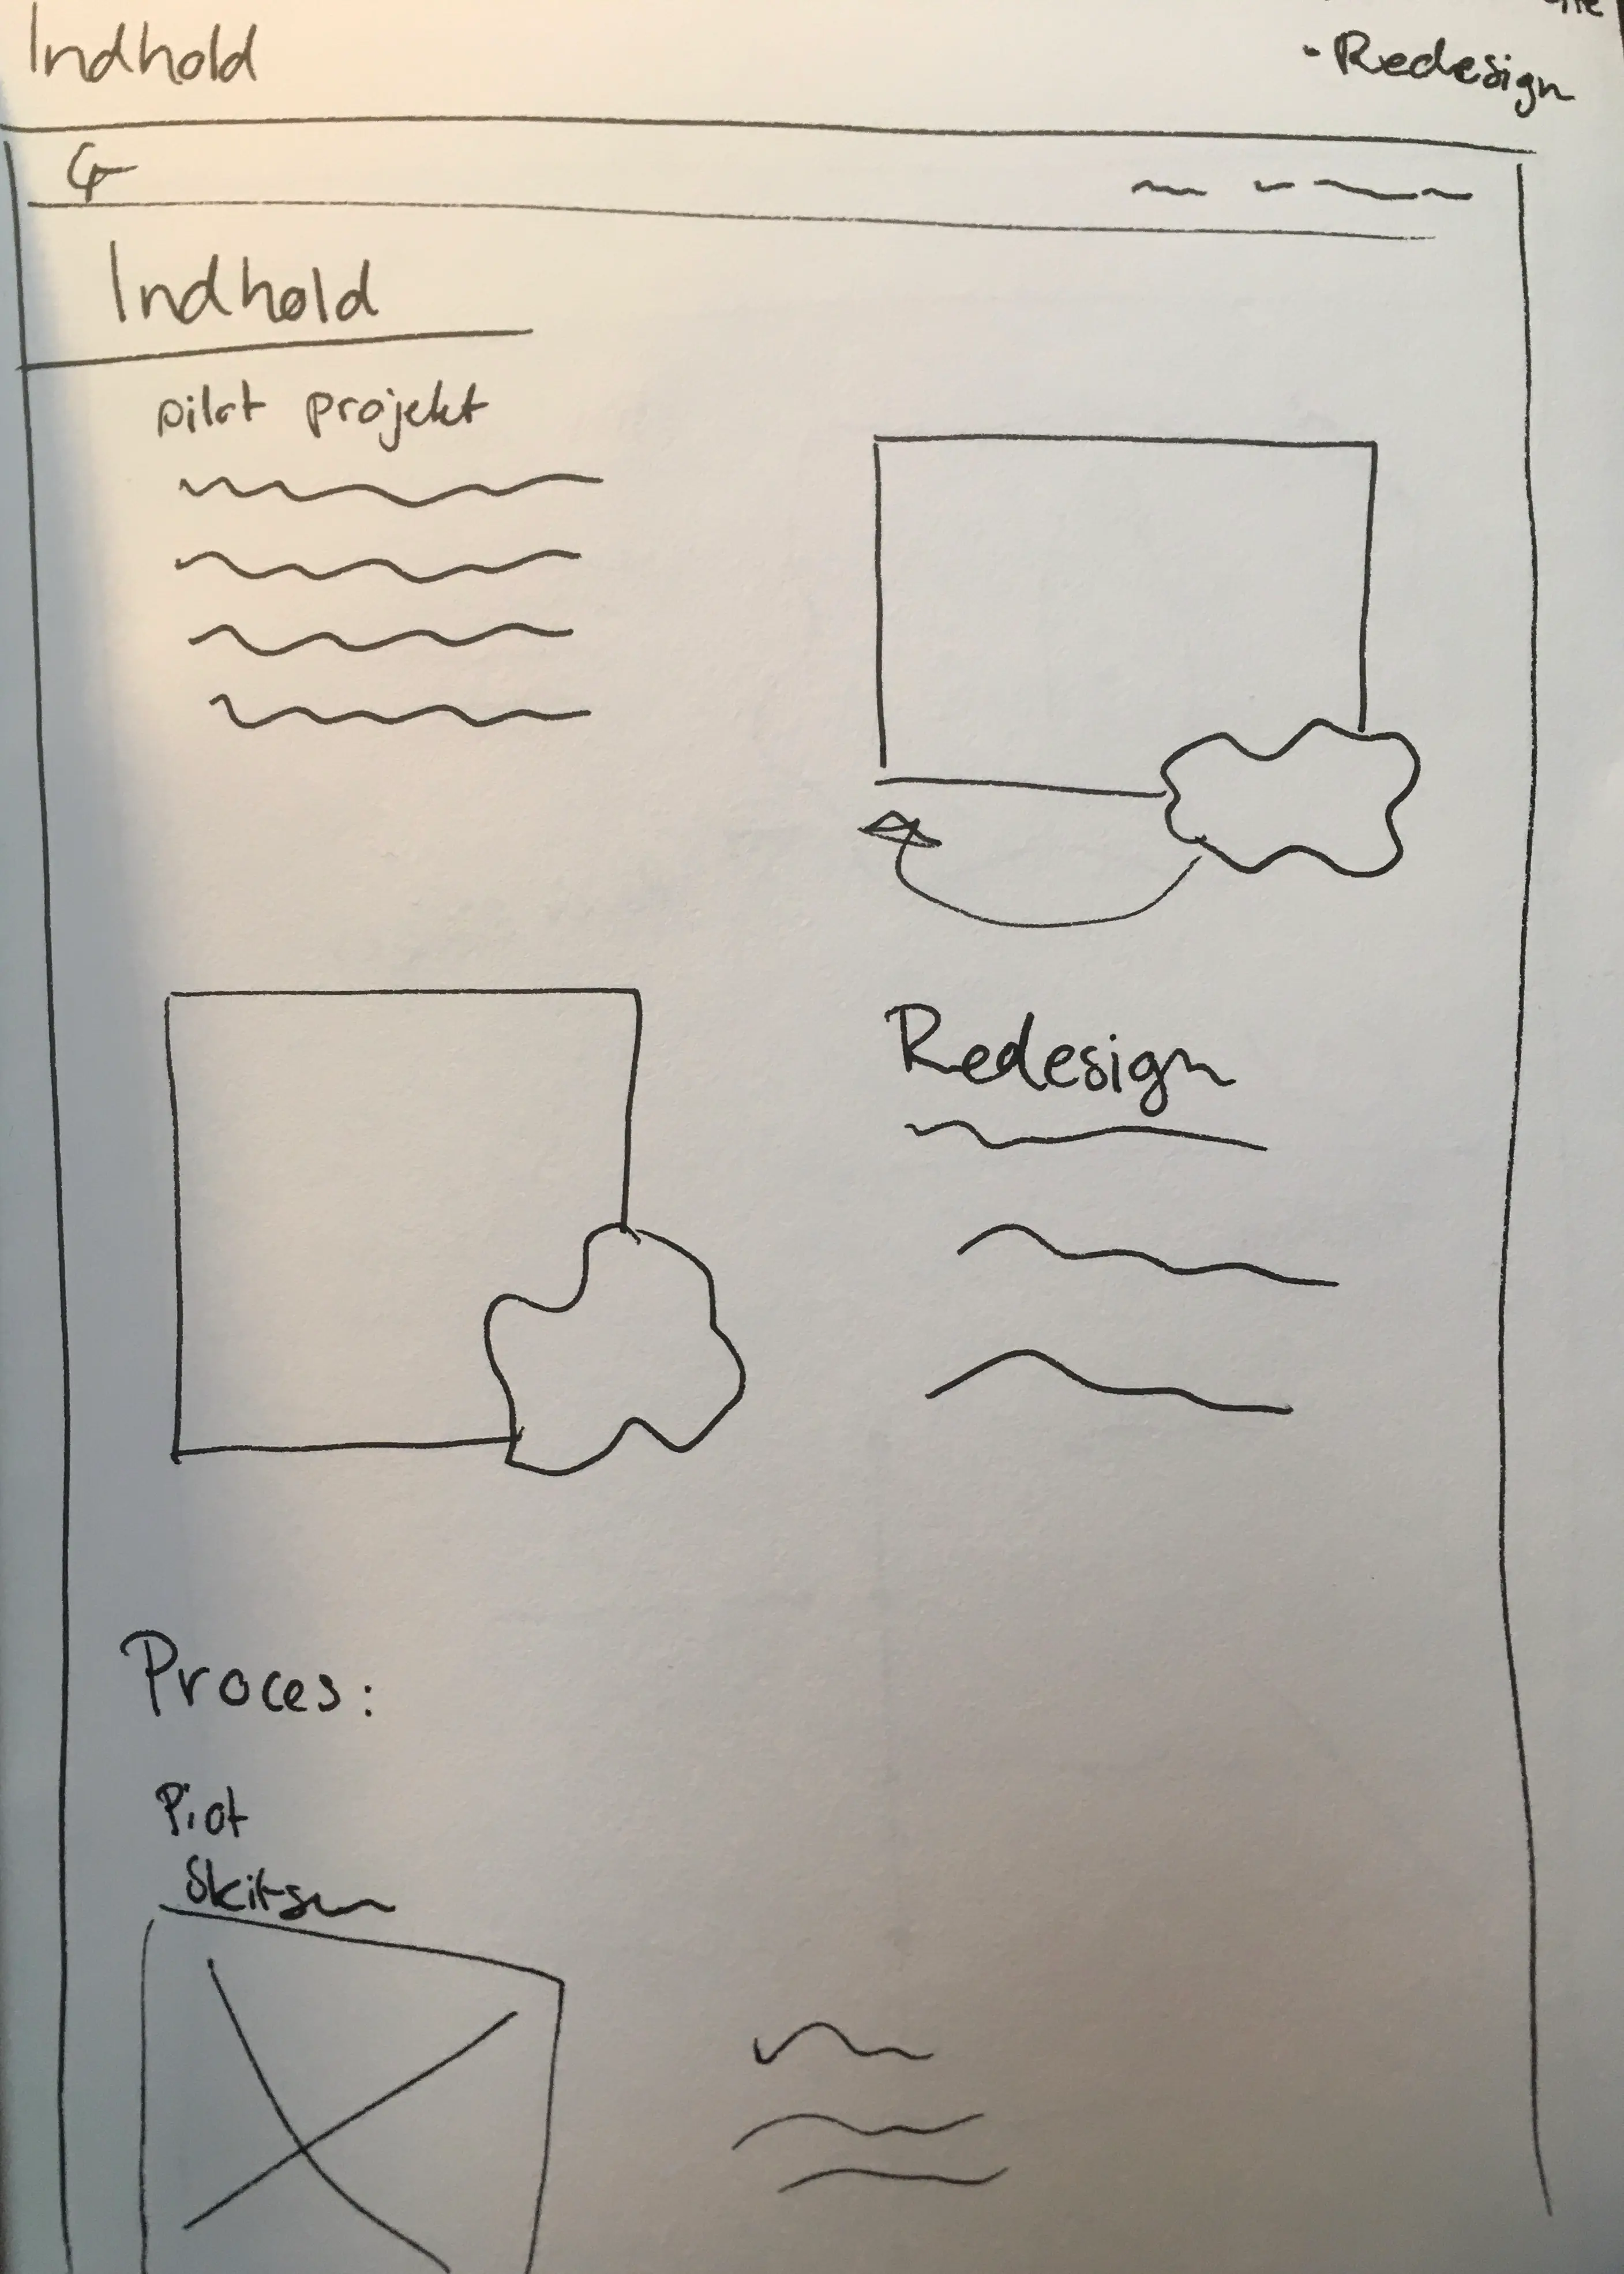 Indhold
- Redesign
Indhold
pilot projekt
Redesign
Proces:
Piot
Skitser